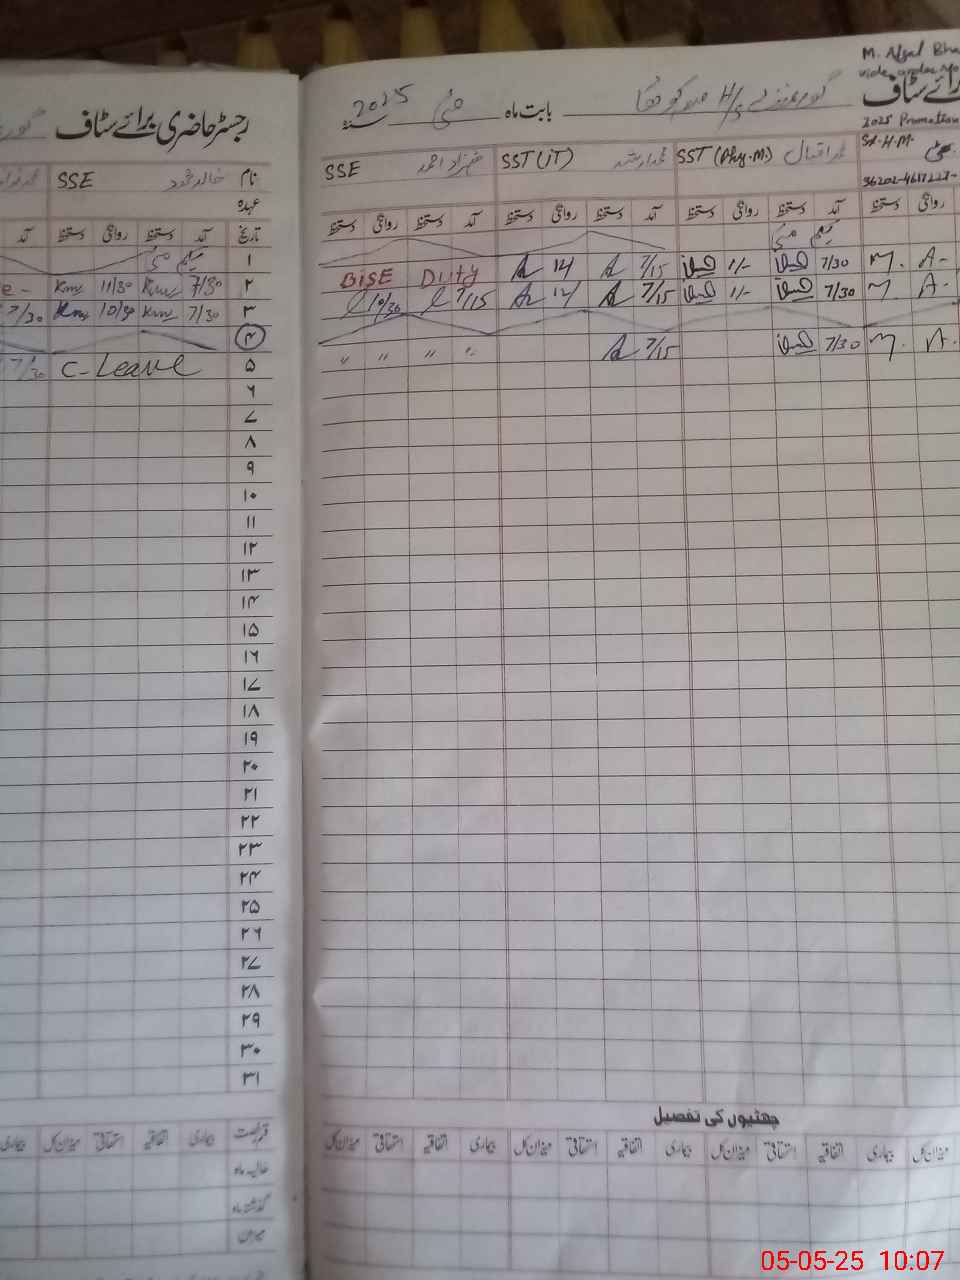 M. Afzal
2025 Promotion
رجسٹر حاضری برائے سٹاف
بابت ماہ مئی سنہ 2025
گورنمنٹ H/S
برائے سٹاف
نام خالد محمود SSE
شہزاد احمد SSE
SST (IT)
محمد اقبال SST (Phy.M.)
S.H.M.
عہدہ
تاریخ آمد دستخط روانگی دستخط آمد
آمد دستخط روانگی دستخط آمد دستخط روانگی دستخط آمد دستخط روانگی دستخط روانگی دستخط
۱ یکم مئی
یکم مئی
۲ 7/30 Km 11/30 Km
BISE Duty 12/ 7/15 1/- 7/30 M. A-
۳ 7/30 Km 10/30 Km 7/30
10/30 7/15 12/ 7/15 1/- 7/30 M. A-
۴
۵ C-Leave 7/30
" " " " 7/15 7/30 M. A-
۶
۷
۸
۹
۱۰
۱۱
۱۲
۱۳
۱۴
۱۵
۱۶
۱۷
۱۸
۱۹
۲۰
۲۱
۲۲
۲۳
۲۴
۲۵
۲۶
۲۷
۲۸
۲۹
۳۰
۳۱
چھٹیوں کی تفصیل
قسم رخصت بیماری اتفاقیہ استحقاقی میزان کل بیماری
میزان کل بیماری اتفاقیہ استحقاقی میزان کل بیماری اتفاقیہ استحقاقی میزان کل بیماری اتفاقیہ استحقاقی میزان کل
حالیہ ماہ
گذشتہ ماہ
میزان
05-05-25 10:07